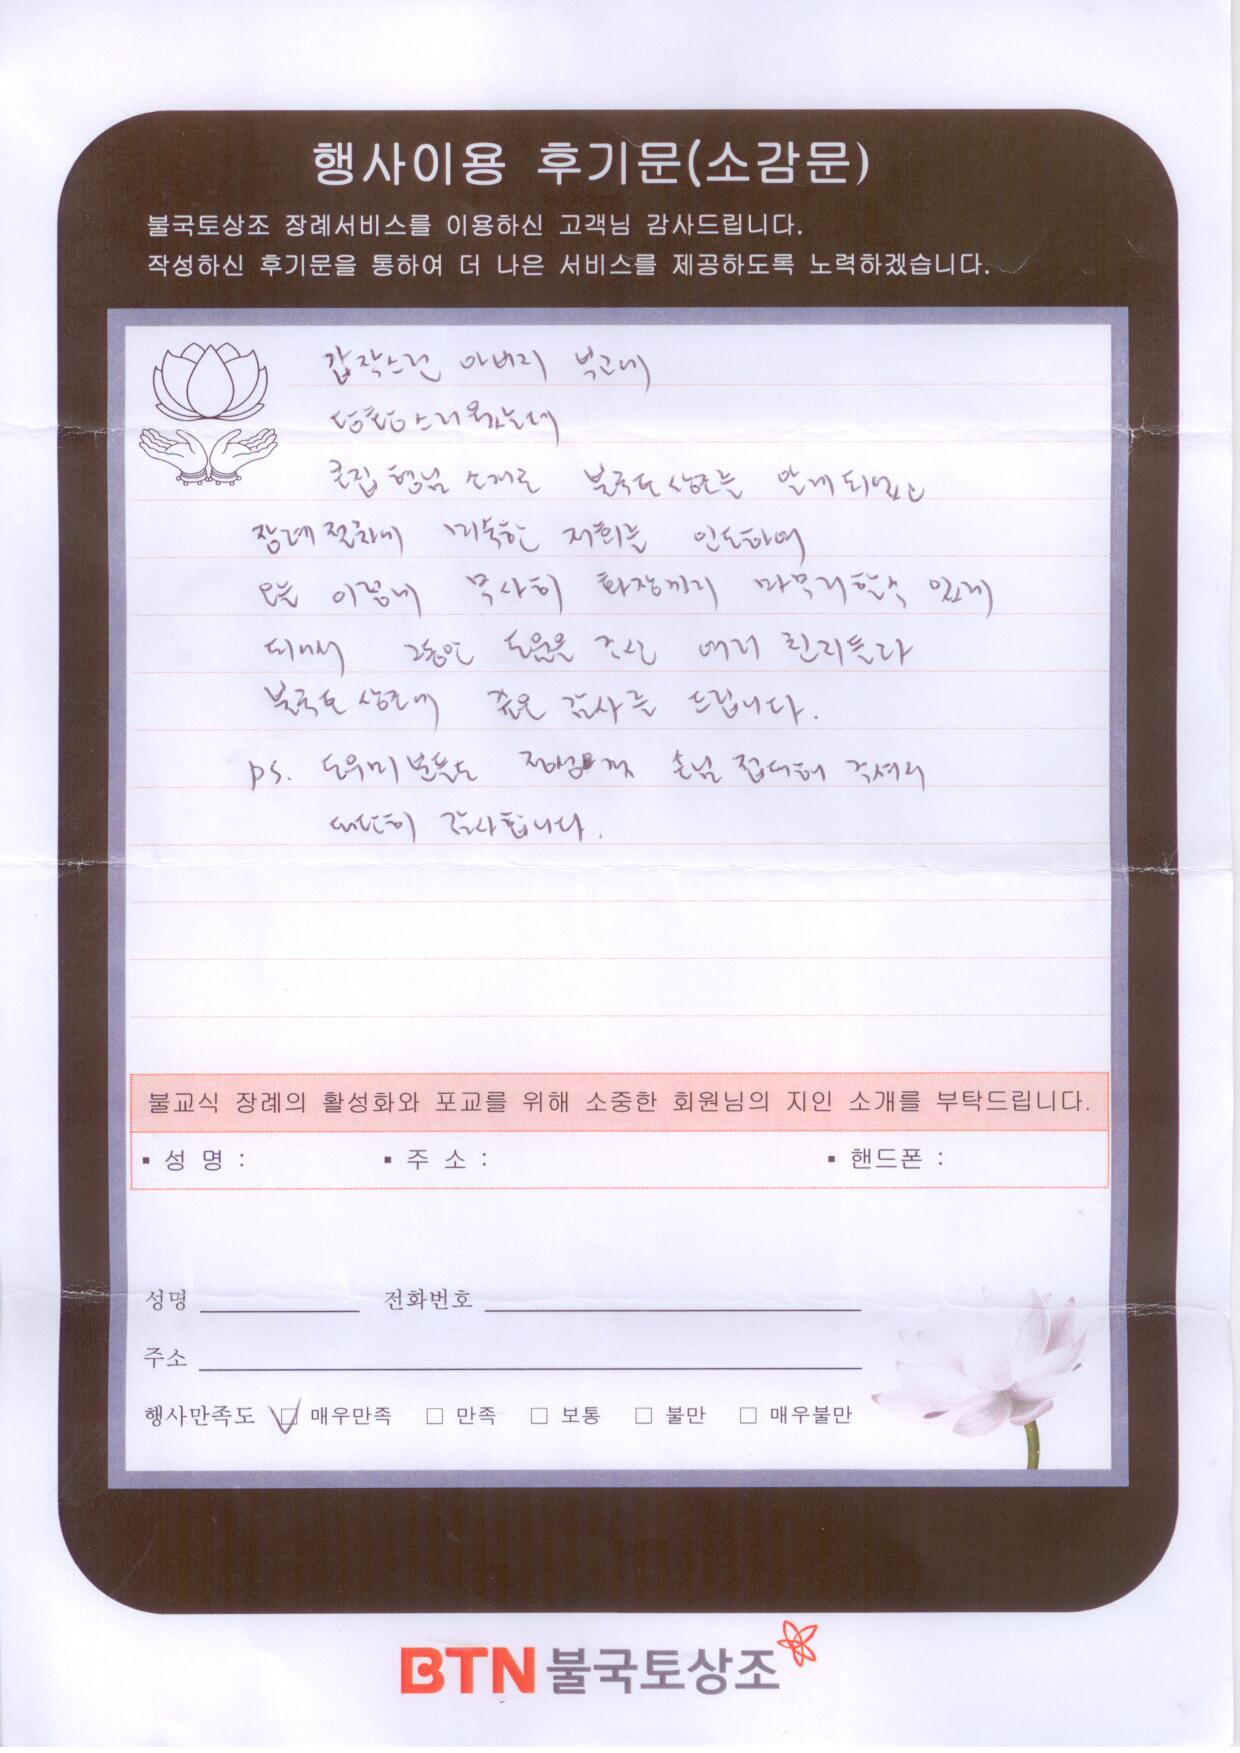 행사이용 후기문(소감문)
불국토상조 장례서비스를 이용하신 고객님 감사드립니다.
작성하신 후기문을 통하여 더 나은 서비스를 제공하도록 노력하겠습니다.
갑작스런 아버지 부고에
큰집 형님 소개로 불국토 상조를 알게 되었고
장례절차에 미숙한 저희를 인도하여
오늘 이렇게 무사히 화장까지 마무리할수 있게
되어서 그동안 도움을 주신 여러 관리들과
불국토 상조에 깊은 감사를 드립니다.
ps. 도우미분들도 정성껏 손님 접대해 주셔서
대단히 감사합니다.
불교식 장례의 활성화와 포교를 위해 소중한 회원님의 지인 소개를 부탁드립니다.
▪ 성 명 : ▪ 주 소 : ▪ 핸드폰 :
성명 전화번호
주소
행사만족도 ☑ 매우만족 □ 만족 □ 보통 □ 불만 □ 매우불만
BTN 불국토상조